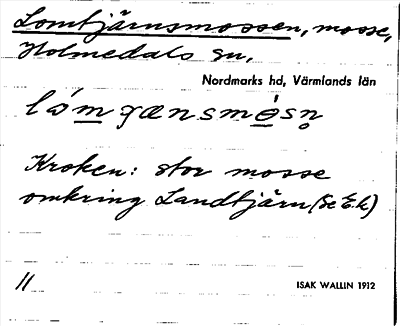 Lomtjärnsmossen, mosse,
Holmedals sn,
Nordmarks hd, Värmlands län
Kroken: stor mosse
omkring Landtjärn (Se E.k)
11
ISAK WALLIN 1912